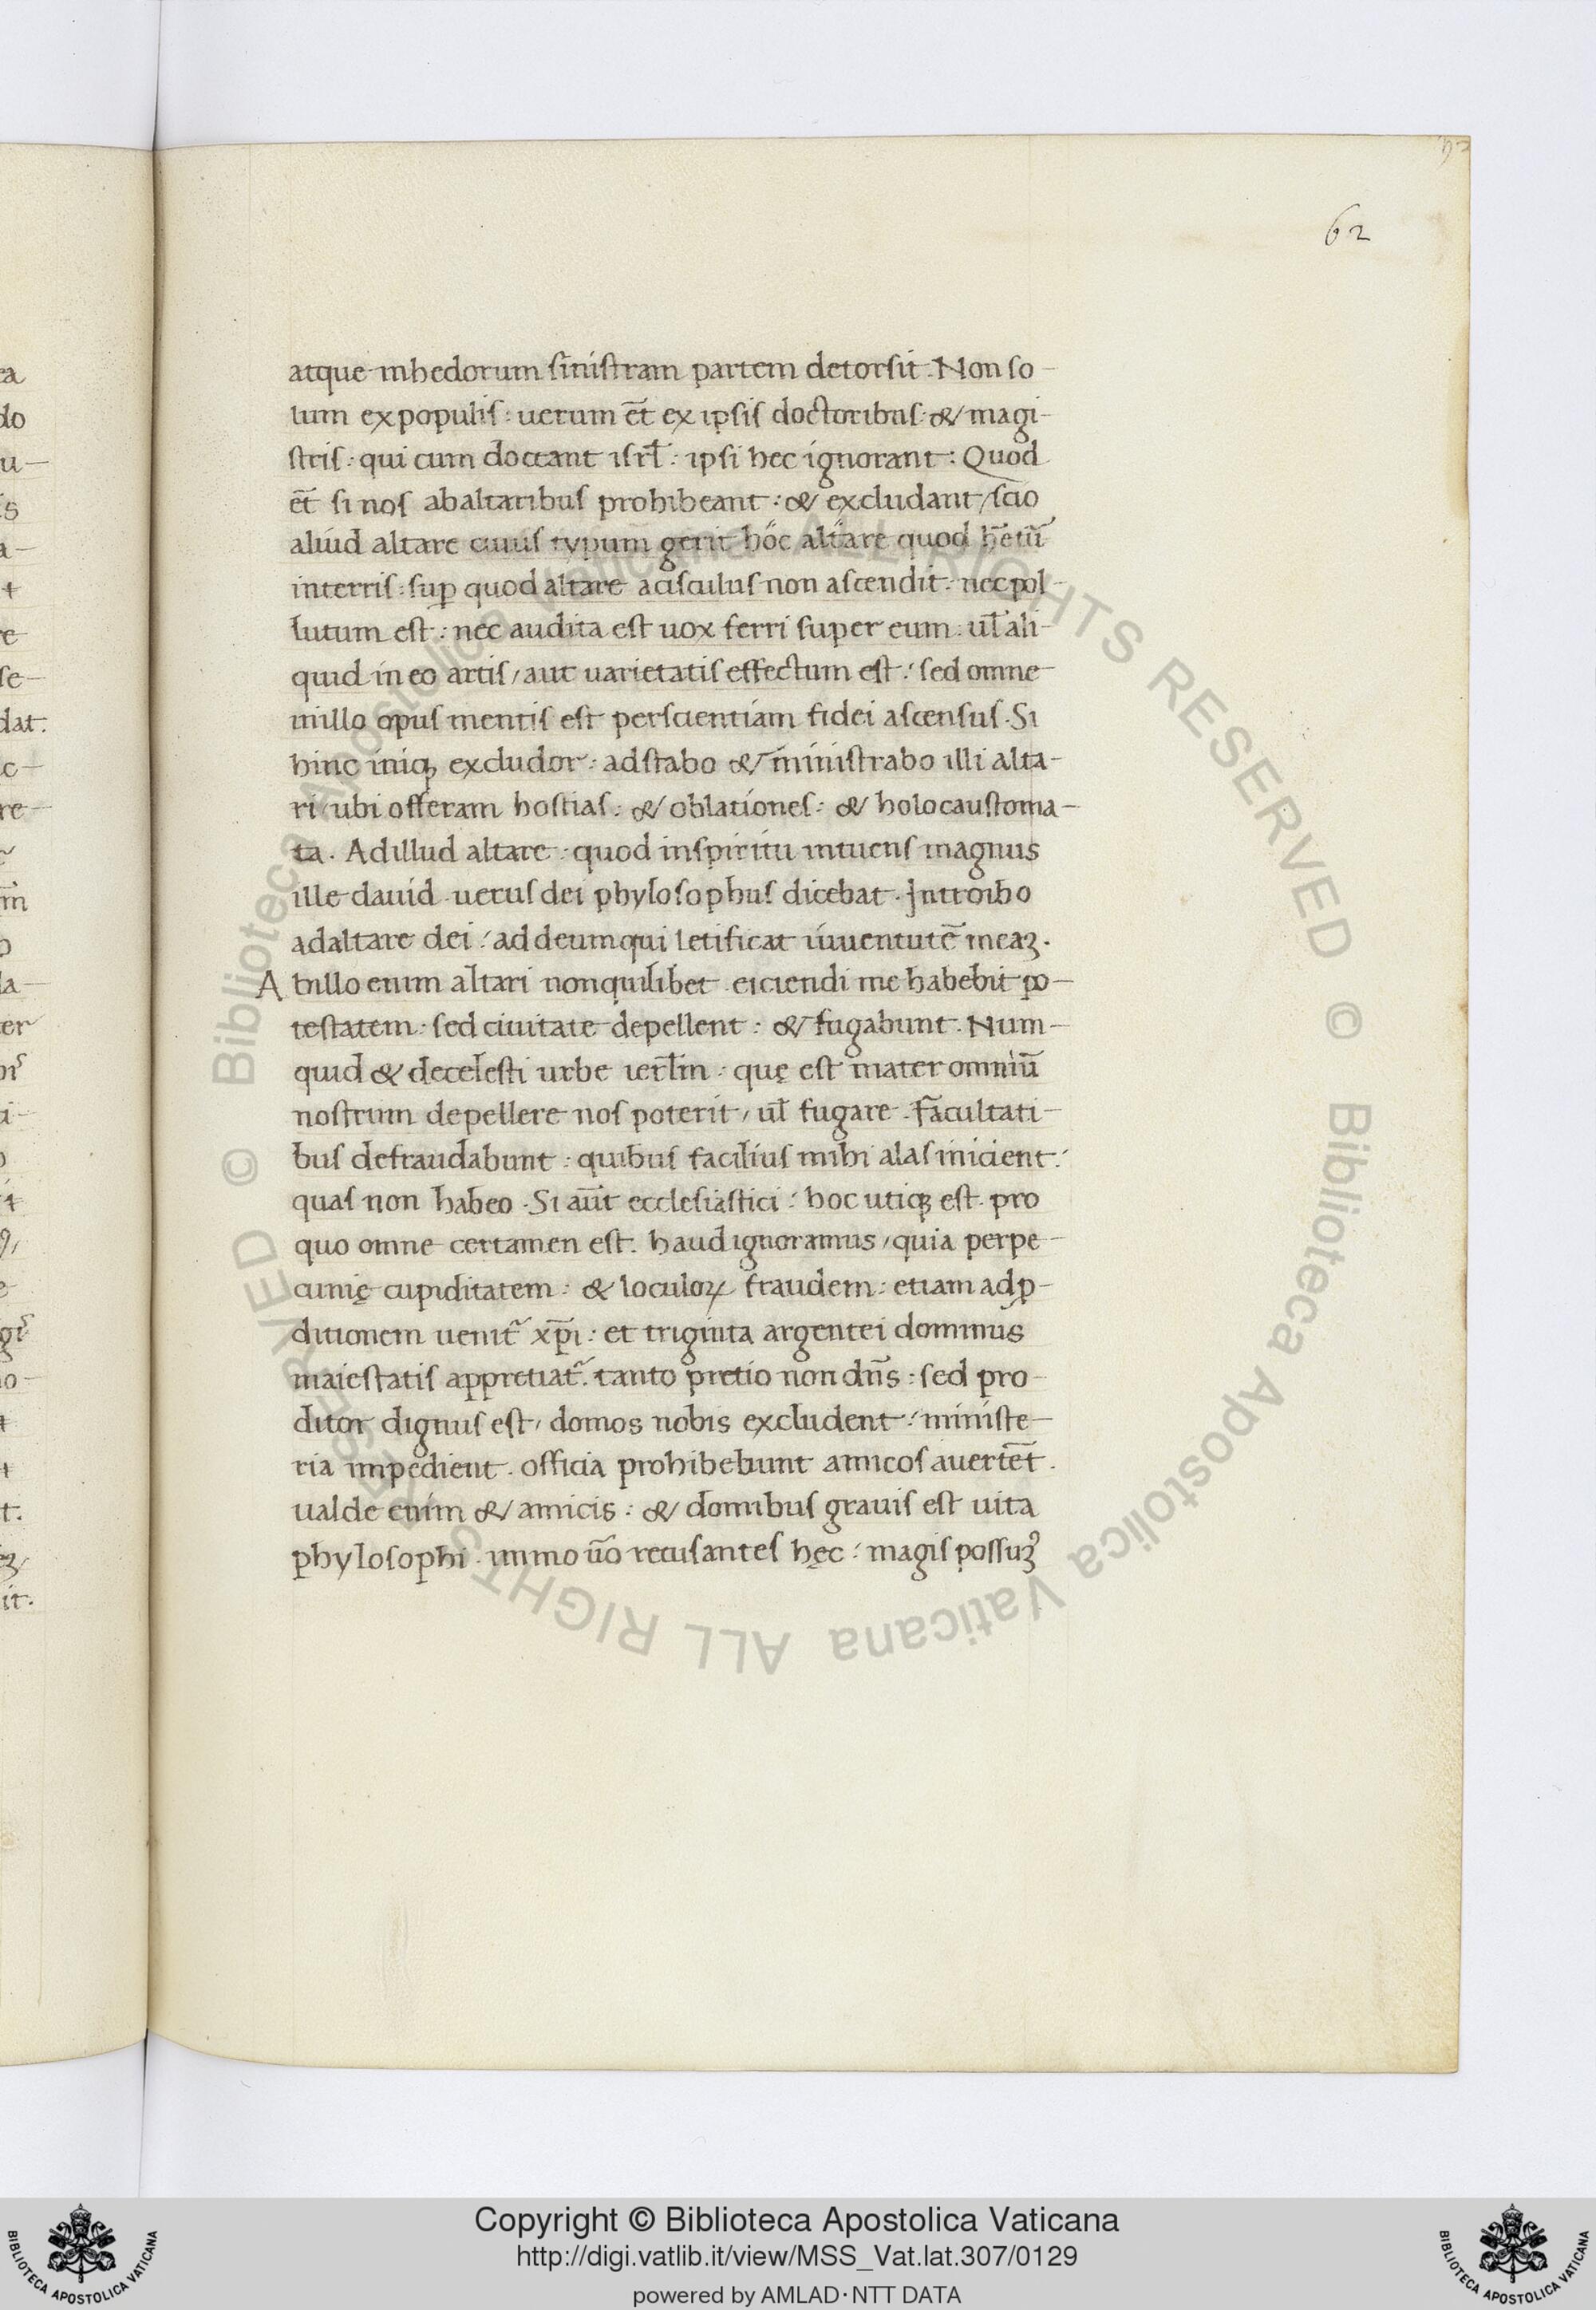 62
atque inhedorum sinistram partem detorsit. Non so-
lum ex populis: uerum et̄ ex ipsis doctoribus: & magi-
stris: qui cum doceant isrl̄: ipsi hec ignorant: Quod
et̄ si nos abaltaribus prohibeant: & excludant, scio
aliud altare cuius typum gerit hóc altáre quod hetū
interris: sup̱ quod altare acisculus non ascendit. nec pol-
lutum est: nec audita est uox ferri super eum. ul̄ ali-
quid in eo artis, aut uarietatis effectum est: sed omne
inillo opus mentis est perscientiam fidei ascensus. Si
hinc iniqȝ excludor: adstabo & ministrabo illi alta-
ri, ubi offeram hostias: & oblationes: & holocaustoma-
ta. Adillud altare: quod inspiritu intuens magnus
ille dauid. uerus dei phylosophus dicebat. Introibo
adaltare dei: ad deum qui letificat iuuentutē meaȝ.
Abillo enim altari nonquilibet. eiciendi me habebit po-
testatem: sed ciuitate depellent: & fugabunt. Num-
quid & decelesti urbe ierl̄m: quę est mater omniū
nostrum depellere nos poterit, ul̄ fugare. Facultati-
bus defraudabunt: quibus facilius mihi alas inicient:
quas non habeo. Si aūt ecclesiastici: hoc utiqȝ est. pro
quo omne certamen est. haud ignoramus, quia perpe-
cunię cupiditatem: & loculoꝝ fraudem: etiam adp̱-
ditionem uenit᷑ xp̄i: et triginta argentei dominus
maiestatis appretiat᷑. tanto pretio non dn̄s: sed pro-
ditor dignus est, domos nobis excludent: ministe-
ria impedient. officia prohibebunt amicos auertēt.
ualde enim & amicis: & domibus grauis est uita
phylosophi. immo ūo recusantes hęc: magis possuȝ᷒
Copyright © Biblioteca Apostolica Vaticana
http://digi.vatlib.it/view/MSS_Vat.lat.307/0129
powered by AMLAD·NTT DATA